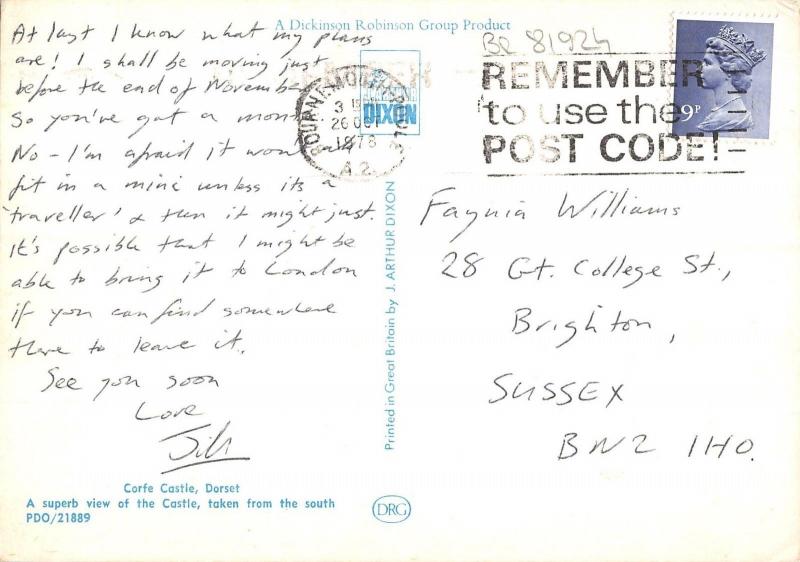 A Dickinson Robinson Group Product
At last I know what my plans
are! I shall be moving just
before the end of November
So you've got a month.
No - I'm afraid it won't
fit in a mini unless its a
'traveller' & then it might just.
It's possible that I might be
able to bring it to London
if you can find somewhere
there to leave it.
See you soon
Love
Corfe Castle, Dorset
A superb view of the Castle, taken from the south
PDO/21889
DIXON
BOURNEMOUTH-POOLE
3
26 OCT
1978
A.2
Printed in Great Britain by J. ARTHUR DIXON
DRG
BR 81924
REMEMBER
to use the
POST CODE!
9P
Faynia Williams
28 Gt. College St.,
Brighton,
SUSSEX
BN2 1HO.